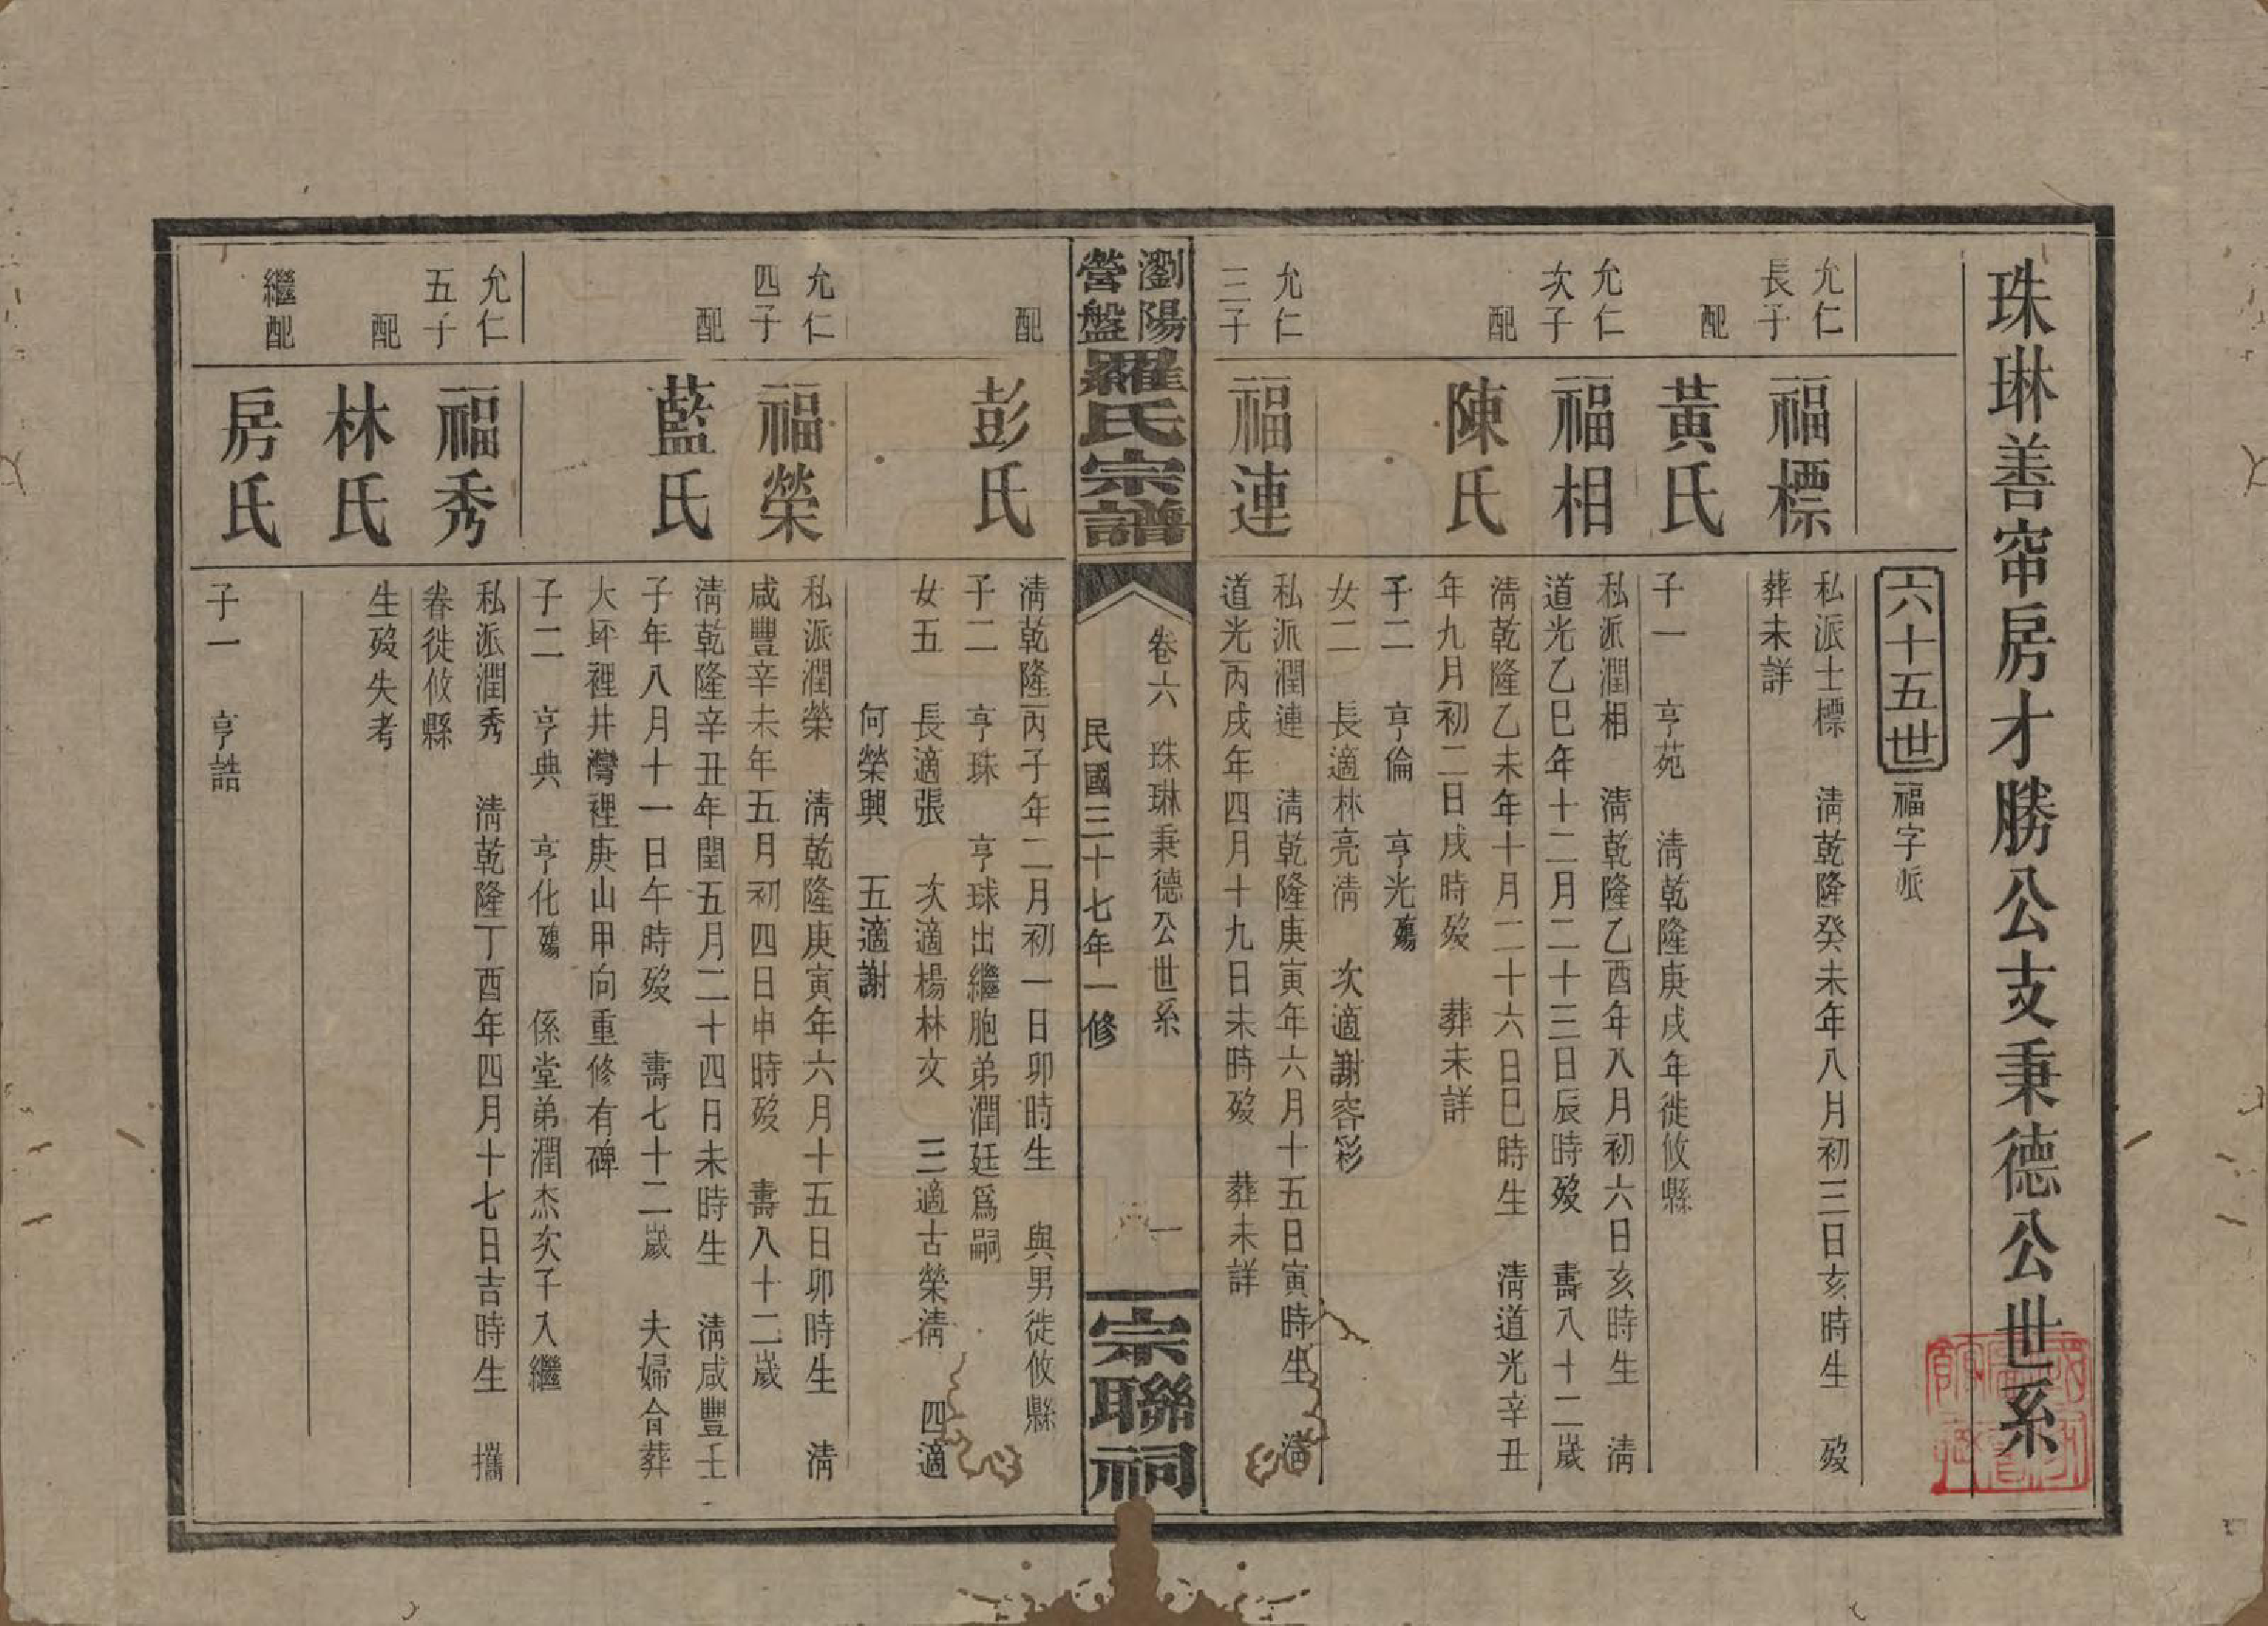 珠琳善窂房才勝公支秉德公世系
六十五世 福字派
允仁長子 福標 私派士標 淸乾隆癸未年八月初三日亥時生 歿
葬未詳
配 黃氏 子一 亨苑 淸乾隆庚戌年徙攸縣
允仁次子 福相 私派潤相 淸乾隆乙酉年八月初六日亥時生 淸
道光乙巳年十二月二十三日辰時歿 壽八十二歲
配 陳氏 淸乾隆乙未年十月二十六日巳時生 淸道光辛丑
年九月初二日戌時歿 葬未詳
子二 亨倫 亨光殤
女二 長適林亮淸 次適謝容彩
允仁三子 福連 私派潤連 淸乾隆庚寅年六月十五日寅時生 淸
道光丙戌年四月十九日未時歿 葬未詳
瀏陽營盤羅氏宗譜 卷六 珠琳秉德公世系 一 宗聯祠
民國三十七年一修
配 彭氏 淸乾隆丙子年二月初一日卯時生 與男徙攸縣
子二 亨珠 亨球出繼胞弟潤廷爲嗣
女五 長適張 次適楊林文 三適古榮淸 四適
何榮興 五適謝
允仁四子 福榮 私派潤榮 淸乾隆庚寅年六月十五日卯時生 淸
咸豐辛未年五月初四日申時歿 壽八十二歲
配 藍氏 淸乾隆辛丑年閏五月二十四日未時生 淸咸豐壬
子年八月十一日午時歿 壽七十二歲 夫婦合葬
大坪裡井灣裡庚山甲向重修有碑
子二 亨典 亨化殤 係堂弟潤杰次子入繼
允仁五子 福秀 私派潤秀 淸乾隆丁酉年四月十七日吉時生 攜
眷徙攸縣
配 林氏 生歿失考
繼配 房氏 子一 亨誥